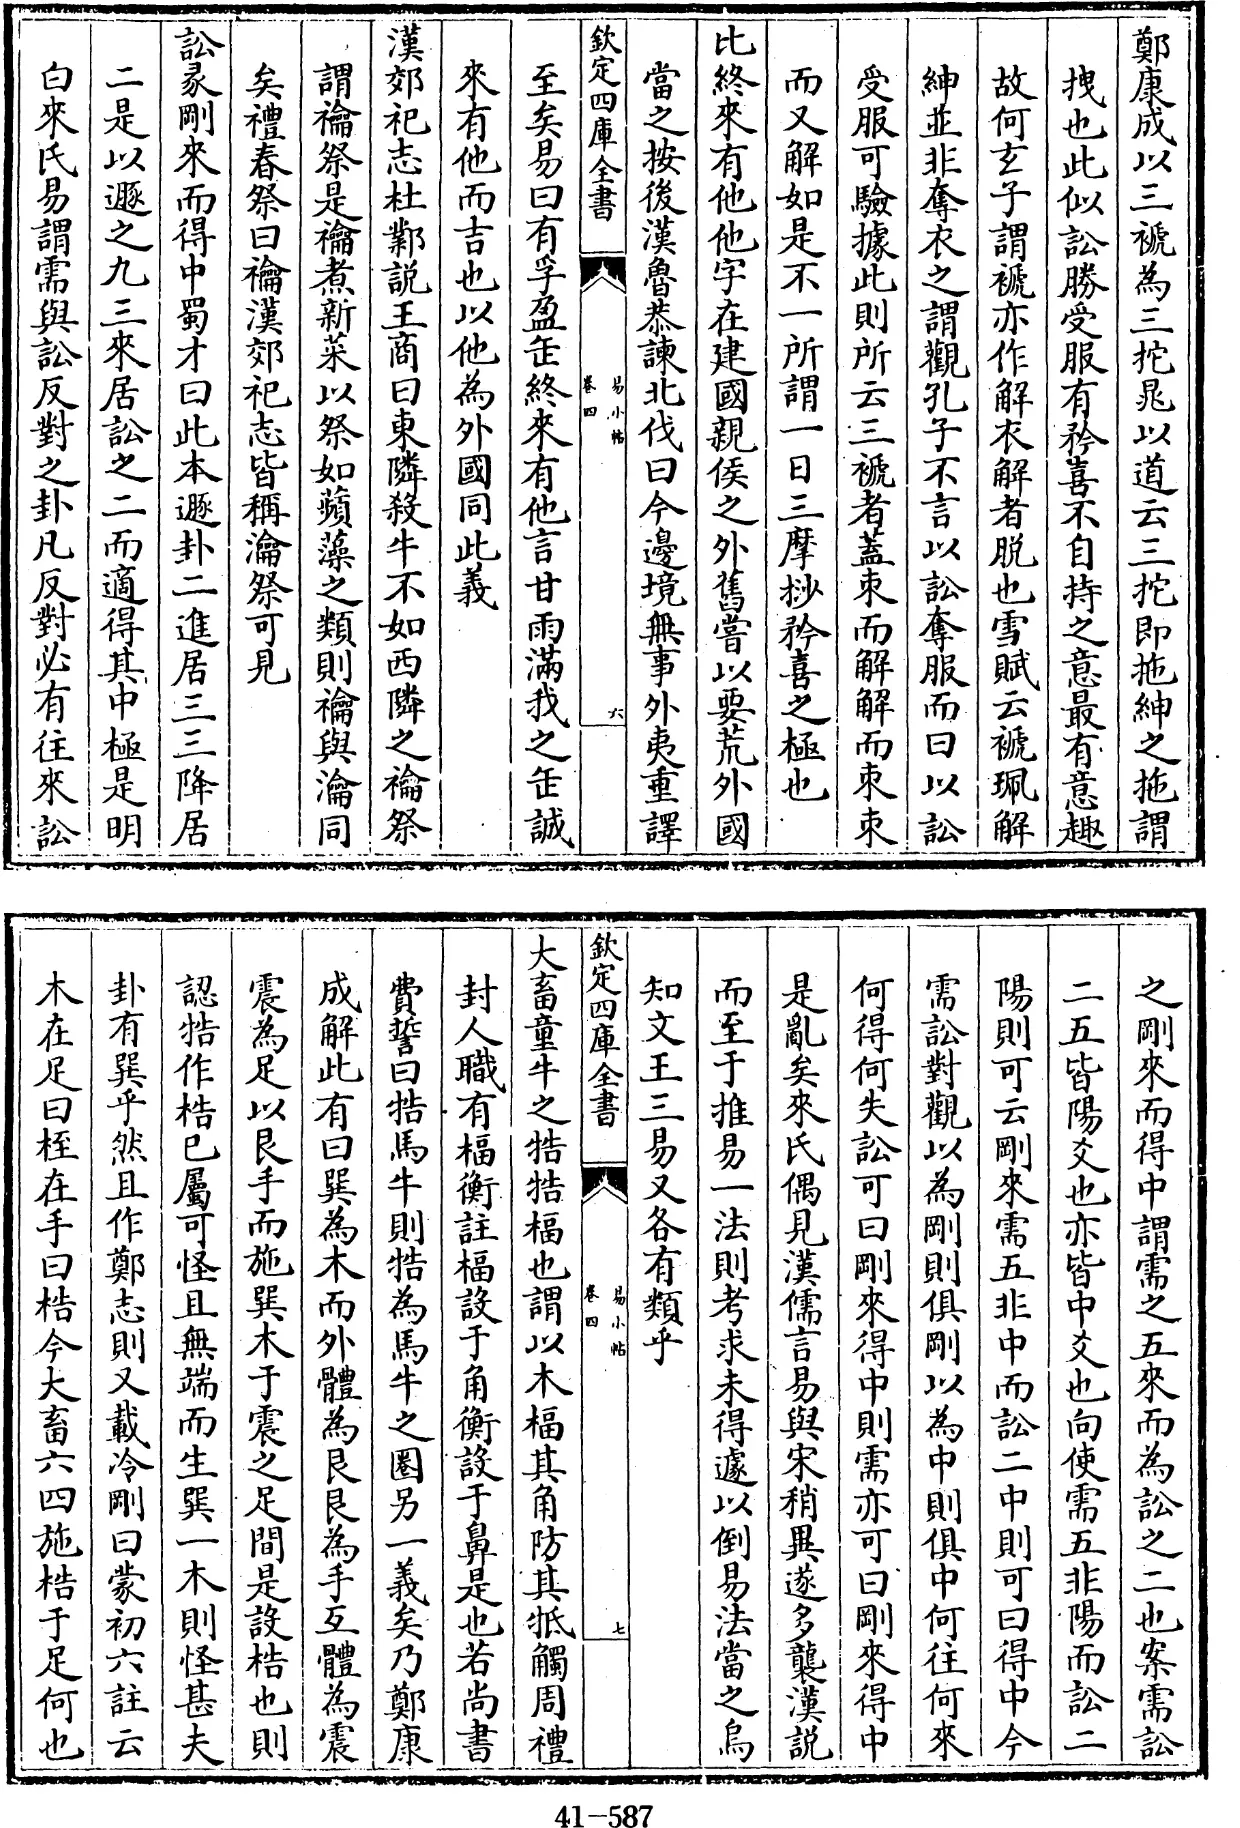 鄭康成以三褫為三拕晁以道云三拕即拖紳之拖謂
拽也此似訟勝受服有矜喜不自持之意最有意趣
故何玄子謂褫亦作解衣解者脱也雪賦云褫珮解
紳並非奪衣之謂觀孔子不言以訟奪服而曰以訟
受服可驗據此則所云三褫者蓋束而解解而束束
而又解如是不一所謂一日三摩挱矜喜之極也
比終來有他他字在建國親侯之外舊嘗以要荒外國
當之按後漢魯恭諫北伐曰今邊境無事外夷重譯
欽定四庫全書
易小帖
卷四
六
至矣易曰有孚盈缶終來有他言甘雨滿我之缶誠
來有他而吉也以他為外國同此義
漢郊祀志杜鄴説王商曰東隣殺牛不如西隣之禴祭
謂禴祭是瀹煮新菜以祭如蘋藻之類則禴與瀹同
矣禮春祭曰禴漢郊祀志皆稱瀹祭可見
訟彖剛來而得中蜀才曰此本遯卦二進居三三降居
二是以遯之九三來居訟之二而適得其中極是明
白來氏易謂需與訟反對之卦凡反對必有往來訟
之剛來而得中謂需之五來而為訟之二也案需訟
二五皆陽爻也亦皆中爻也向使需五非陽而訟二
陽則可云剛來需五非中而訟二中則可曰得中今
需訟對觀以為剛則俱剛以為中則俱中何往何來
何得何失訟可曰剛來得中則需亦可曰剛來得中
是亂矣來氏偶見漢儒言易與宋稍異遂多襲漢説
而至于推易一法則考求未得遽以倒易法當之烏
知文王三易又各有類乎
欽定四庫全書
易小帖
卷四
七
大畜童牛之牿牿楅也謂以木楅其角防其牴觸周禮
封人職有楅衡註楅設于角衡設于鼻是也若尚書
費誓曰牿馬牛則牿為馬牛之圈另一義矣乃鄭康
成解此有曰巽為木而外體為艮艮為手互體為震
震為足以艮手而施巽木于震之足間是設梏也則
認牿作梏已屬可怪且無端而生巽一木則怪甚夫
卦有巽乎然且作鄭志則又載冷剛曰蒙初六註云
木在足曰桎在手曰梏今大畜六四施梏于足何也
41-587